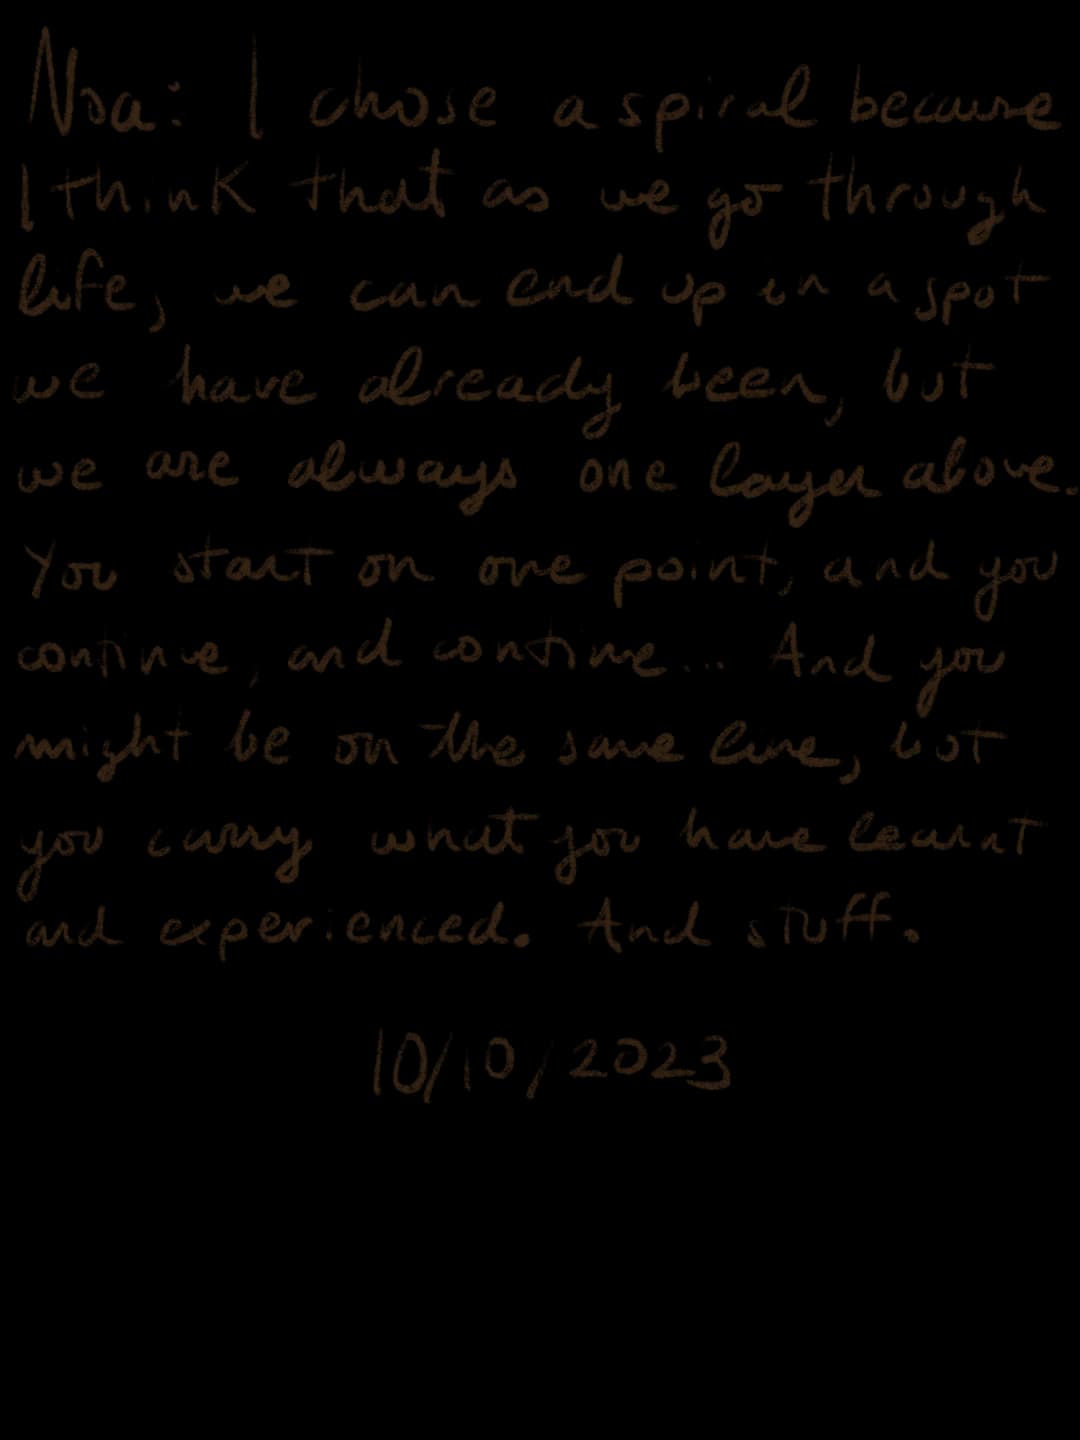 Noa: I chose a spiral because
I think that as we go through
life, we can end up in a spot
we have already been, but
we are always one layer above.
You start on one point, and you
continue, and continue... And you
might be on the same line, but
you carry what you have learnt
and experienced. And stuff.
10/10/2023